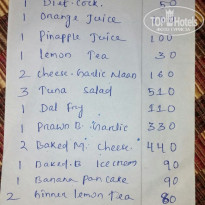 1 Diet. Cock. 50
1 Orange Juice
1 Pinapple Juice 100
1 Lemon Tea 30
2 Cheese-Garlic Naan 160
3 Tuna Salad 510
1 Dal Fry 110
1 Prawn B. 330
2 Baked M. Cheese 440
1 Baked.B Icecream 90
1 Banana Pancake 90
2 Lemon Tea 80
TOP Hotels